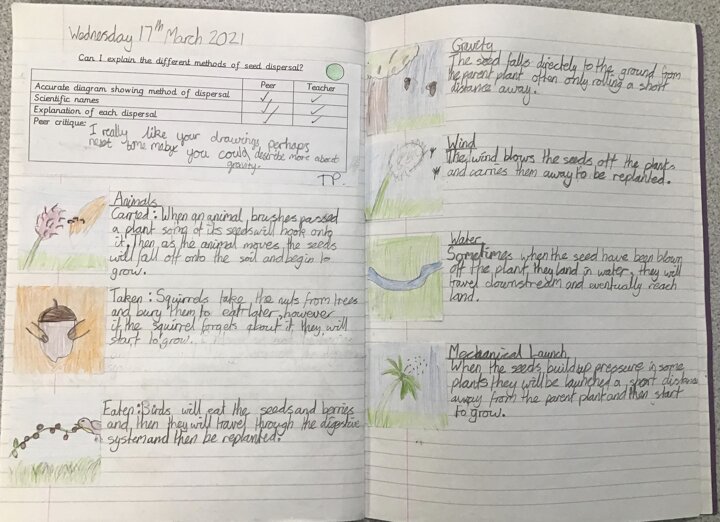 Wednesday 17th March 2021
Can I explain the different methods of seed dispersal?
Peer Teacher
Accurate diagram showing method of dispersal ✓
Scientific names ✓ ✓
Explanation of each dispersal ✓ ✓
Peer critique: I really like your drawings, perhaps
next time mabye you could describe more about
gravity.
TP.
Animals
Carried: When an animal brushes passed
a plant some of its seeds will hook onto
it, then, as the animal moves, the seeds
will fall off onto the soil and begin to
grow.
Taken: Squirrels take the nuts from trees
and bury them to eat later, however
if the squirrel forgets about it they will
start to grow.
Eaten: Birds will eat the seeds and berries
and then they will travel through the digestive
system and then be replanted.
Gravity
The seed falls directely to the ground from
the parent plant often only rolling a short
distance away.
Wind
The wind blows the seeds off the plants
and carries them away to be replanted.
Water
Sometimes when the seed have been blown
off the plant, they land in water, they will
travel downstream and eventually reach
land.
Mechanical Launch
When the seeds build up pressure in some
plants they will be launched a short distance
away from the parent plant and then start
to grow.